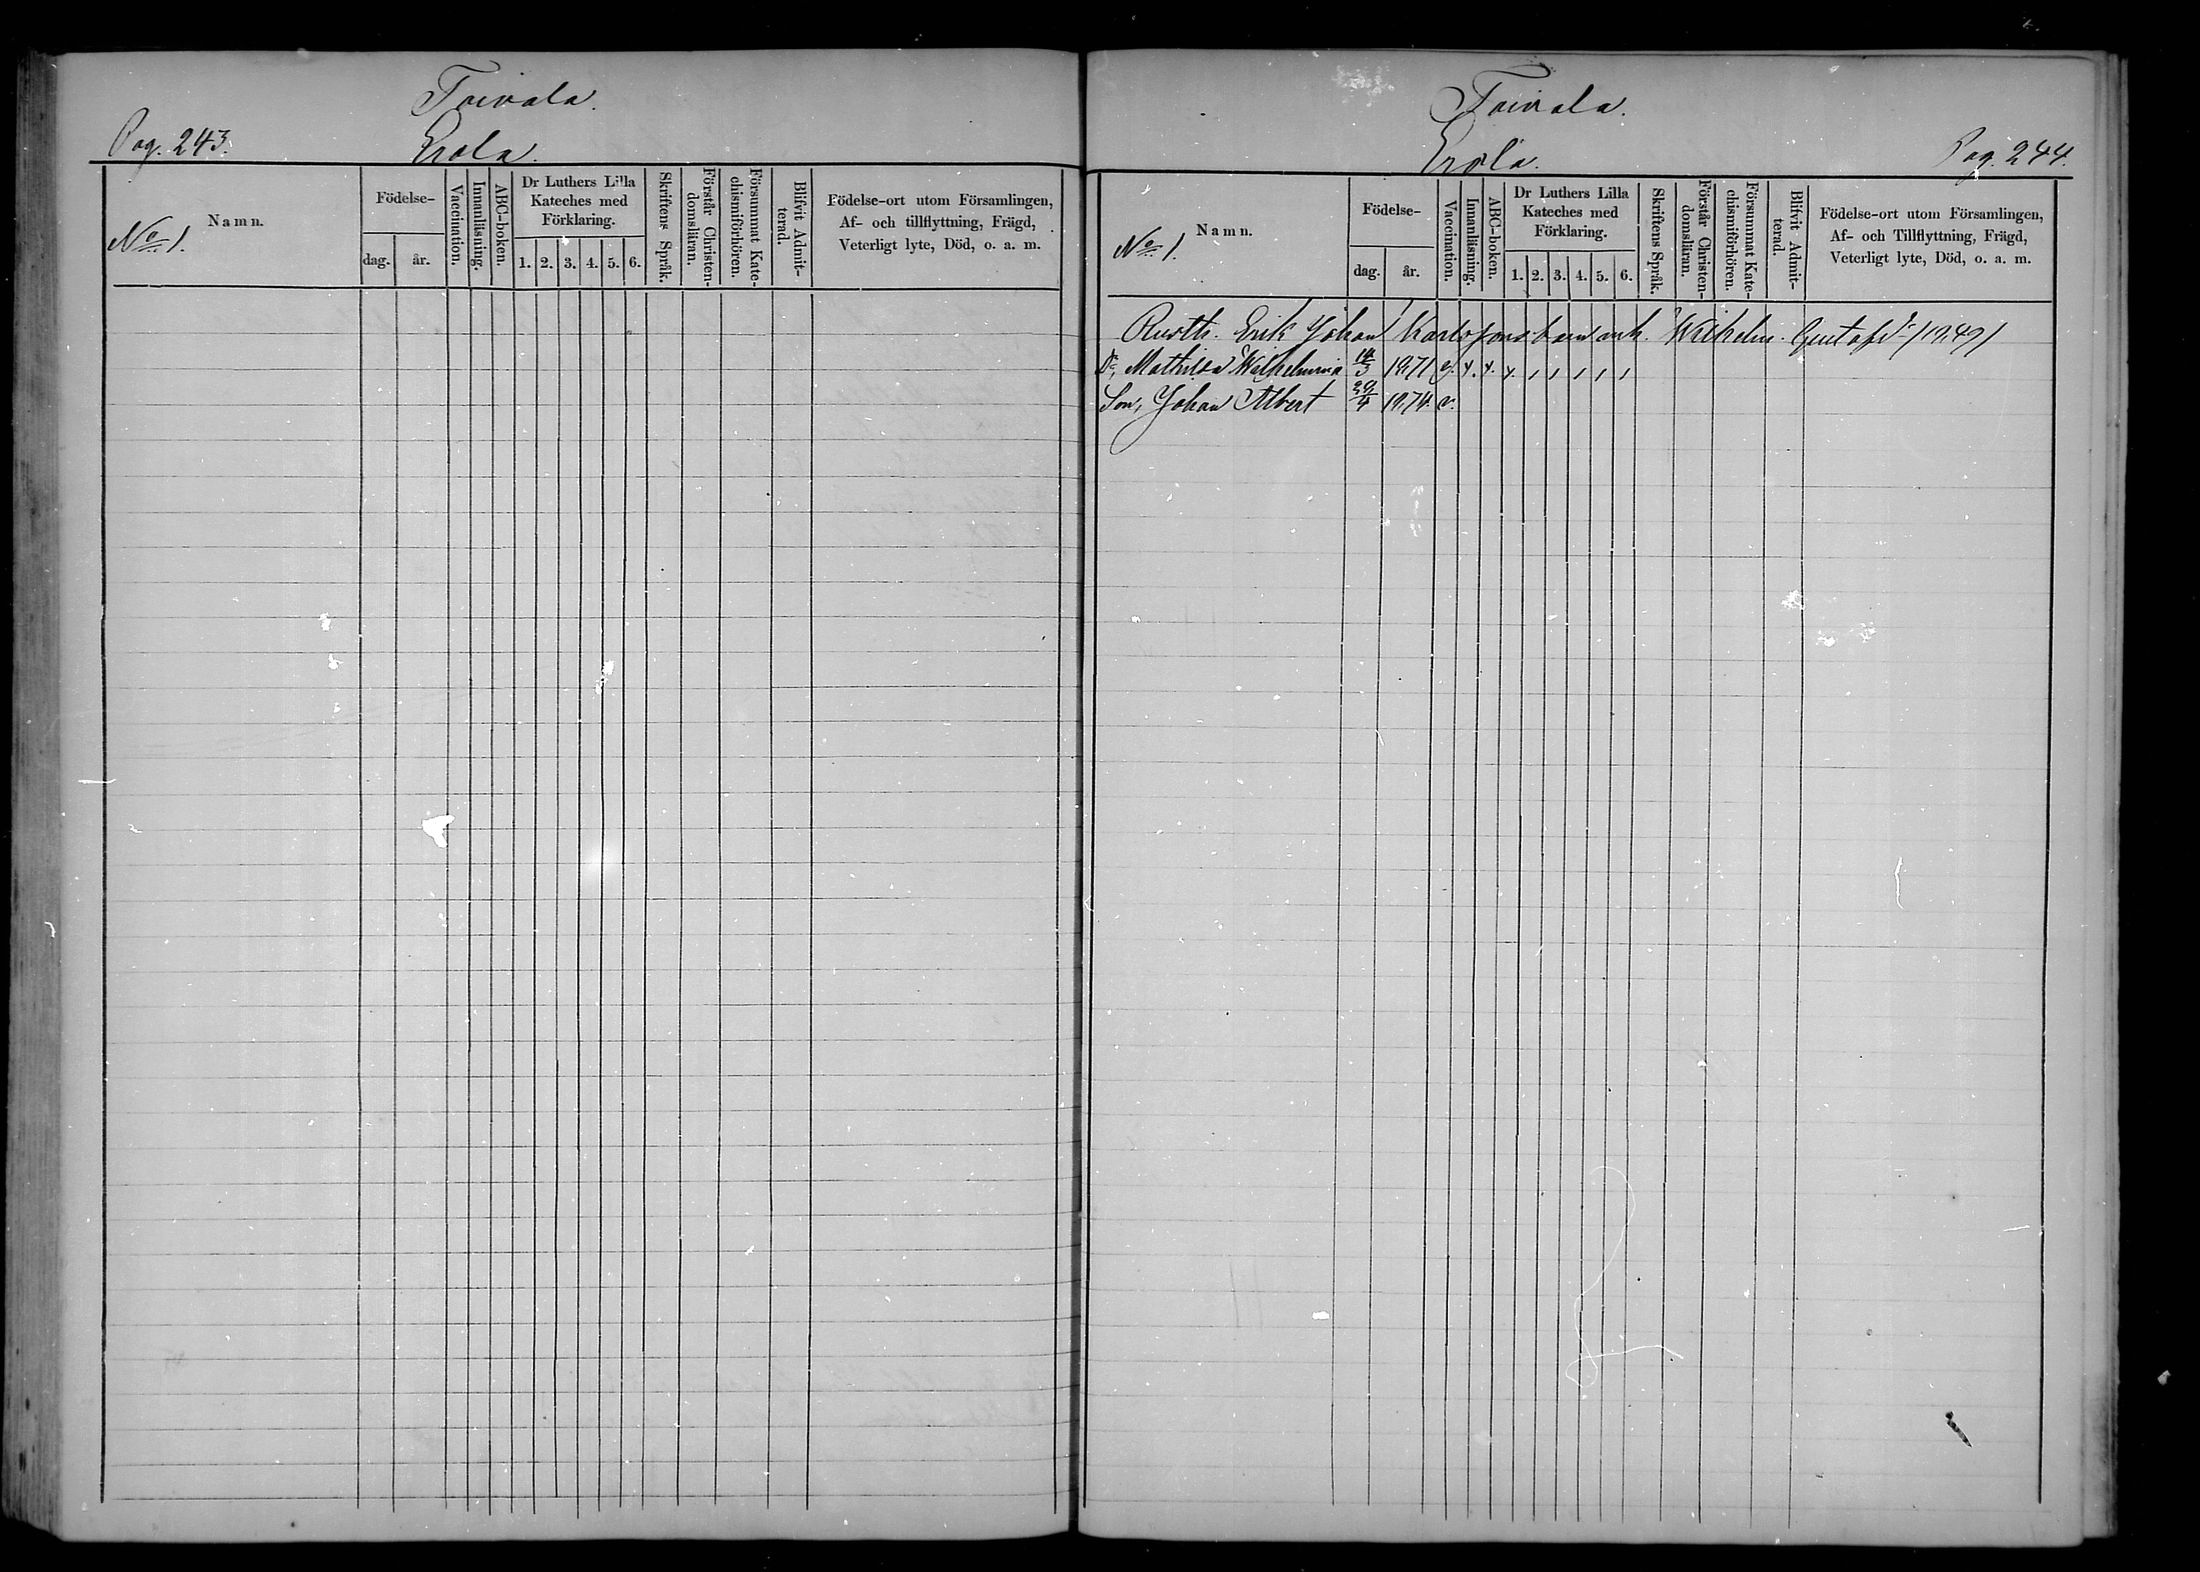 Toivala.
Pag. 243. Erola.
No 1.
Namn.
Födelse-
dag. år.
Vaccination.
Innanläsning.
ABC-boken.
Dr Luthers Lilla
Kateches med
Förklaring.
1. 2. 3. 4. 5. 6.
Skriftens Språk.
Förstår Christen-
domsläran.
Försummat Kate-
chismiförhören.
Blifvit Admit-
terad.
Födelse-ort utom Församlingen,
Af- och tillflyttning, Frägd,
Veterligt lyte, Död, o. a. m.
Toivala.
Erola. Pag. 244.
No 1.
Namn.
Födelse-
dag. år.
Vaccination.
Innanläsning.
ABC-boken.
Dr Luthers Lilla
Kateches med
Förklaring.
1. 2. 3. 4. 5. 6.
Skriftens Språk.
Förstår Christen-
domsläran.
Försummat Kate-
chismiförhören.
Blifvit Admit-
terad.
Födelse-ort utom Församlingen,
Af- och Tillflyttning, Frägd,
Veterligt lyte, Död, o. a. m.
Rusth. Erik Johan Karlssons barn Wilhelm
Dr, Mathilda Wilhelmina 14/3 1871 v. x. x. x , , , , ,
Son, Johan Albert 29/4 1874 v.